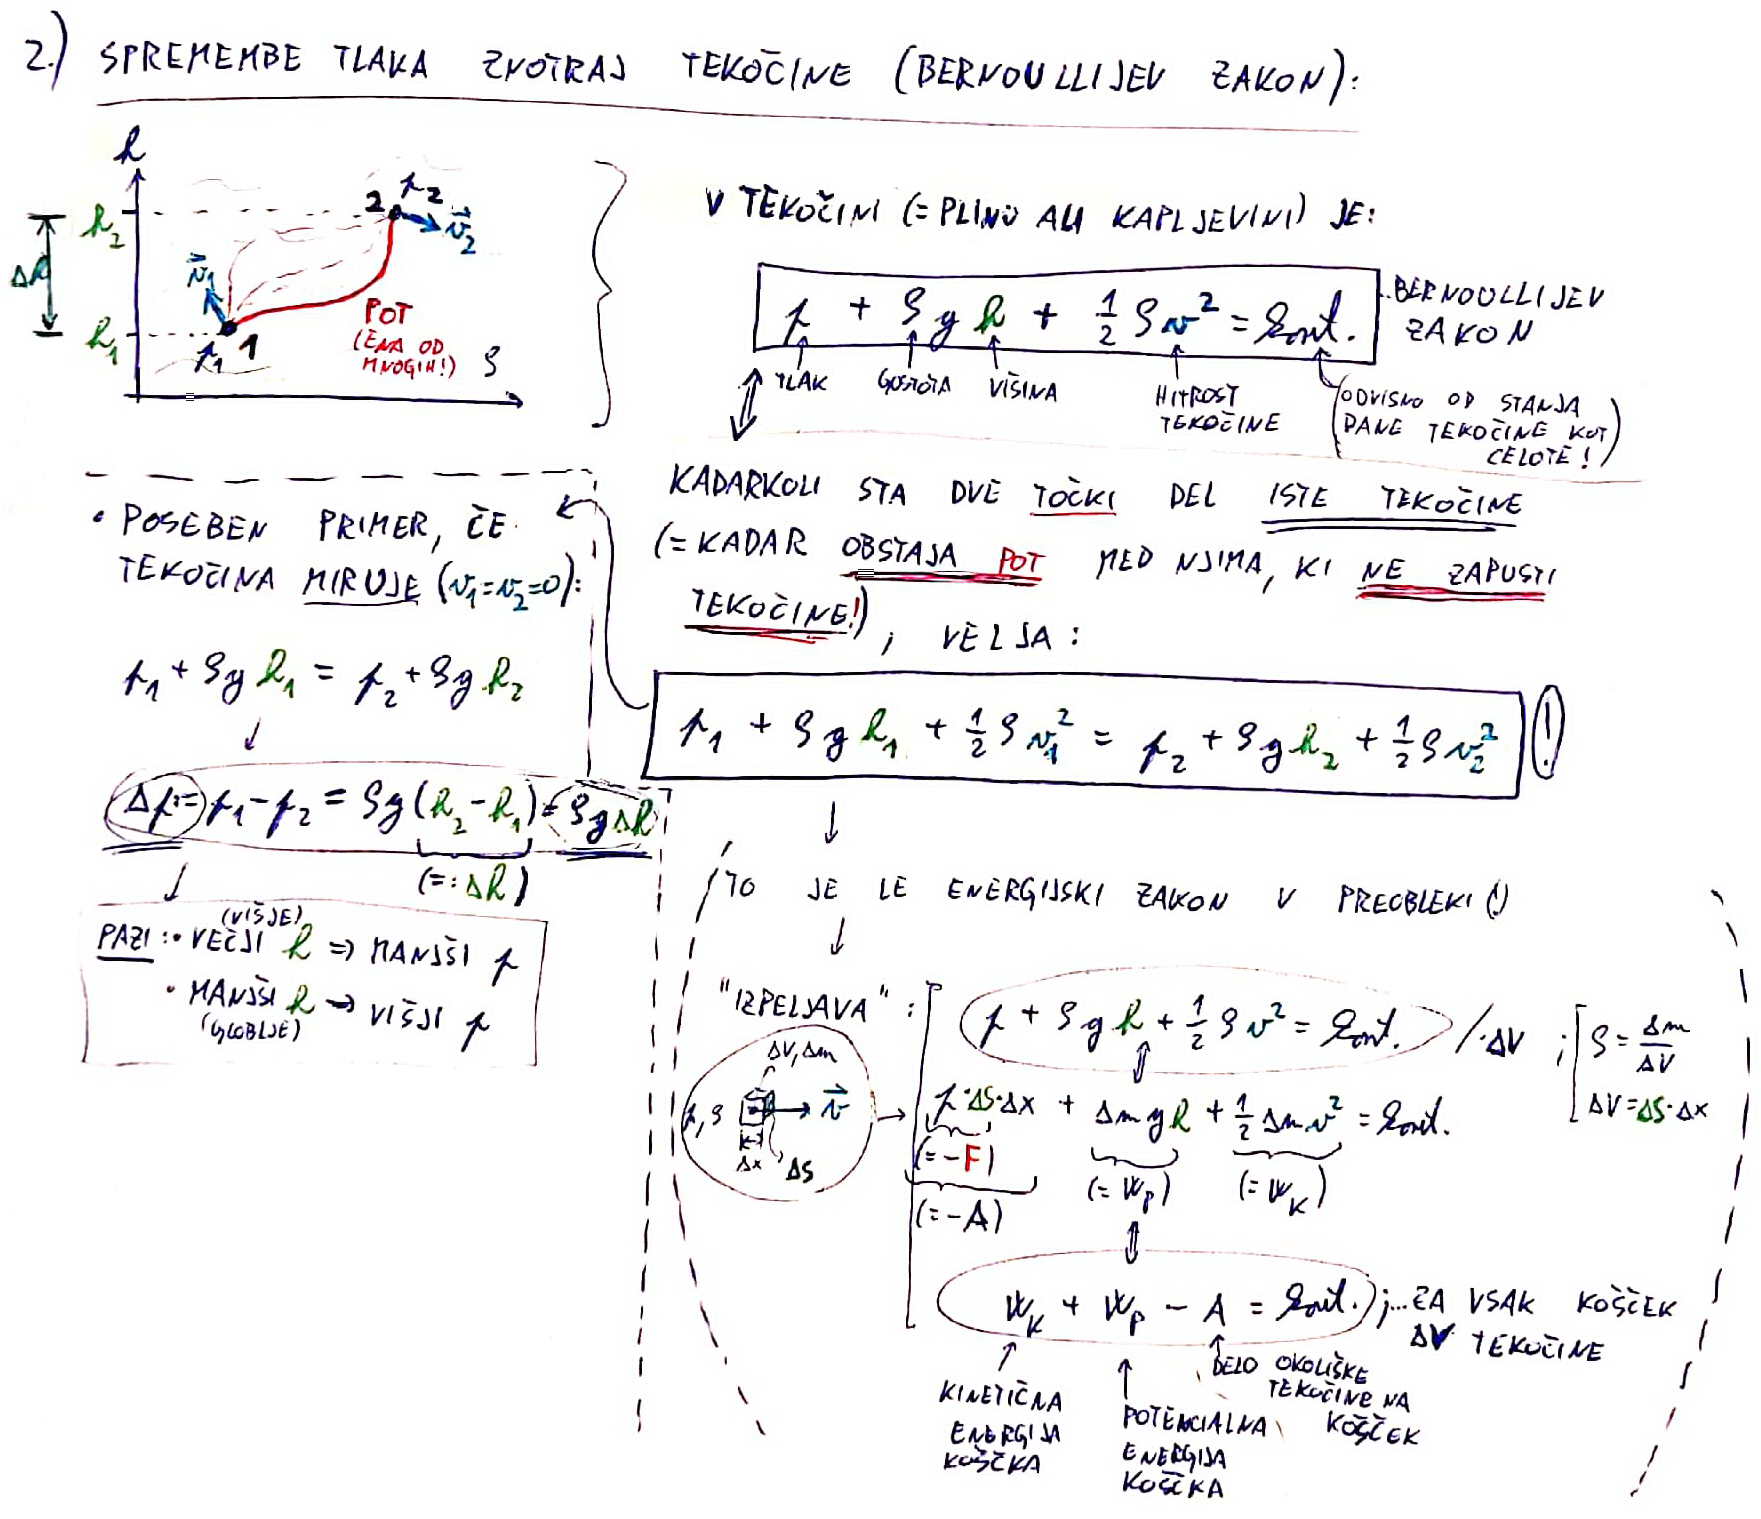 2.) SPREMEMBE TLAKA ZNOTRAJ TEKOČINE (BERNOULLIJEV ZAKON):
h
h₂
Δh
h₁
2 p₂
v⃗₂
v⃗₁
p₁ 1
POT
(ENA OD
MNOGIH!)
S
V TEKOČINI (= PLINU ALI KAPLJEVINI) JE:
p + ρgh + ½ρv² = konst.
BERNOULLIJEV
ZAKON
TLAK GOSTOTA VIŠINA
HITROST
TEKOČINE
(ODVISNO OD STANJA
DANE TEKOČINE KOT
CELOTE!)
KADARKOLI STA DVE TOČKI DEL ISTE TEKOČINE
(= KADAR OBSTAJA POT MED NJIMA, KI NE ZAPUSTI
TEKOČINE!), VELJA:
p₁ + ρgh₁ + ½ρv₁² = p₂ + ρgh₂ + ½ρv₂² (!)
• POSEBEN PRIMER, ČE
TEKOČINA MIRUJE (v₁=v₂=0):
p₁ + ρgh₁ = p₂ + ρgh₂
Δp := p₁ - p₂ = ρg(h₂ - h₁) = ρgΔh
(=: Δh)
PAZI: • VEČJI h ⇒ MANJŠI p
(VIŠJE)
• MANJŠI h → VIŠJI p
(GLOBLJE)
(TO JE LE ENERGIJSKI ZAKON V PREOBLEKI (!)
"IZPELJAVA":
p + ρgh + ½ρv² = konst. /·ΔV ;
ρ = Δm/ΔV
ΔV = ΔS·Δx
ΔV, Δm
p, ρ
v⃗
Δx
ΔS
p·ΔS·Δx + Δmgh + ½Δmv² = konst.
(= -F)
(= -A)
(= Wp)
(= WK)
WK + Wp - A = konst. ;...ZA VSAK KOŠČEK
ΔV TEKOČINE
KINETIČNA
ENERGIJA
KOŠČKA
POTENCIALNA
ENERGIJA
KOŠČKA
DELO OKOLIŠKE
TEKOČINE NA
KOŠČEK